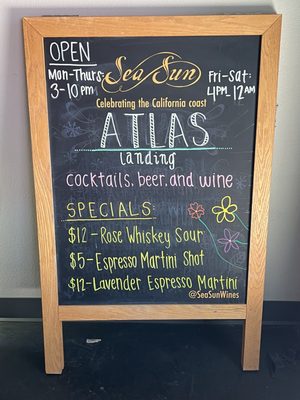 OPEN
Mon-Thurs:
3-10pm
Sea Sun
Fri-Sat:
4PM-12AM
Celebrating the California coast
ATLAS
Landing
cocktails, beer, and wine
SPECIALS:
$12-Rose Whiskey Sour
$5-Espresso Martini Shot
$12-Lavender Espresso Martini
@SeaSunWines